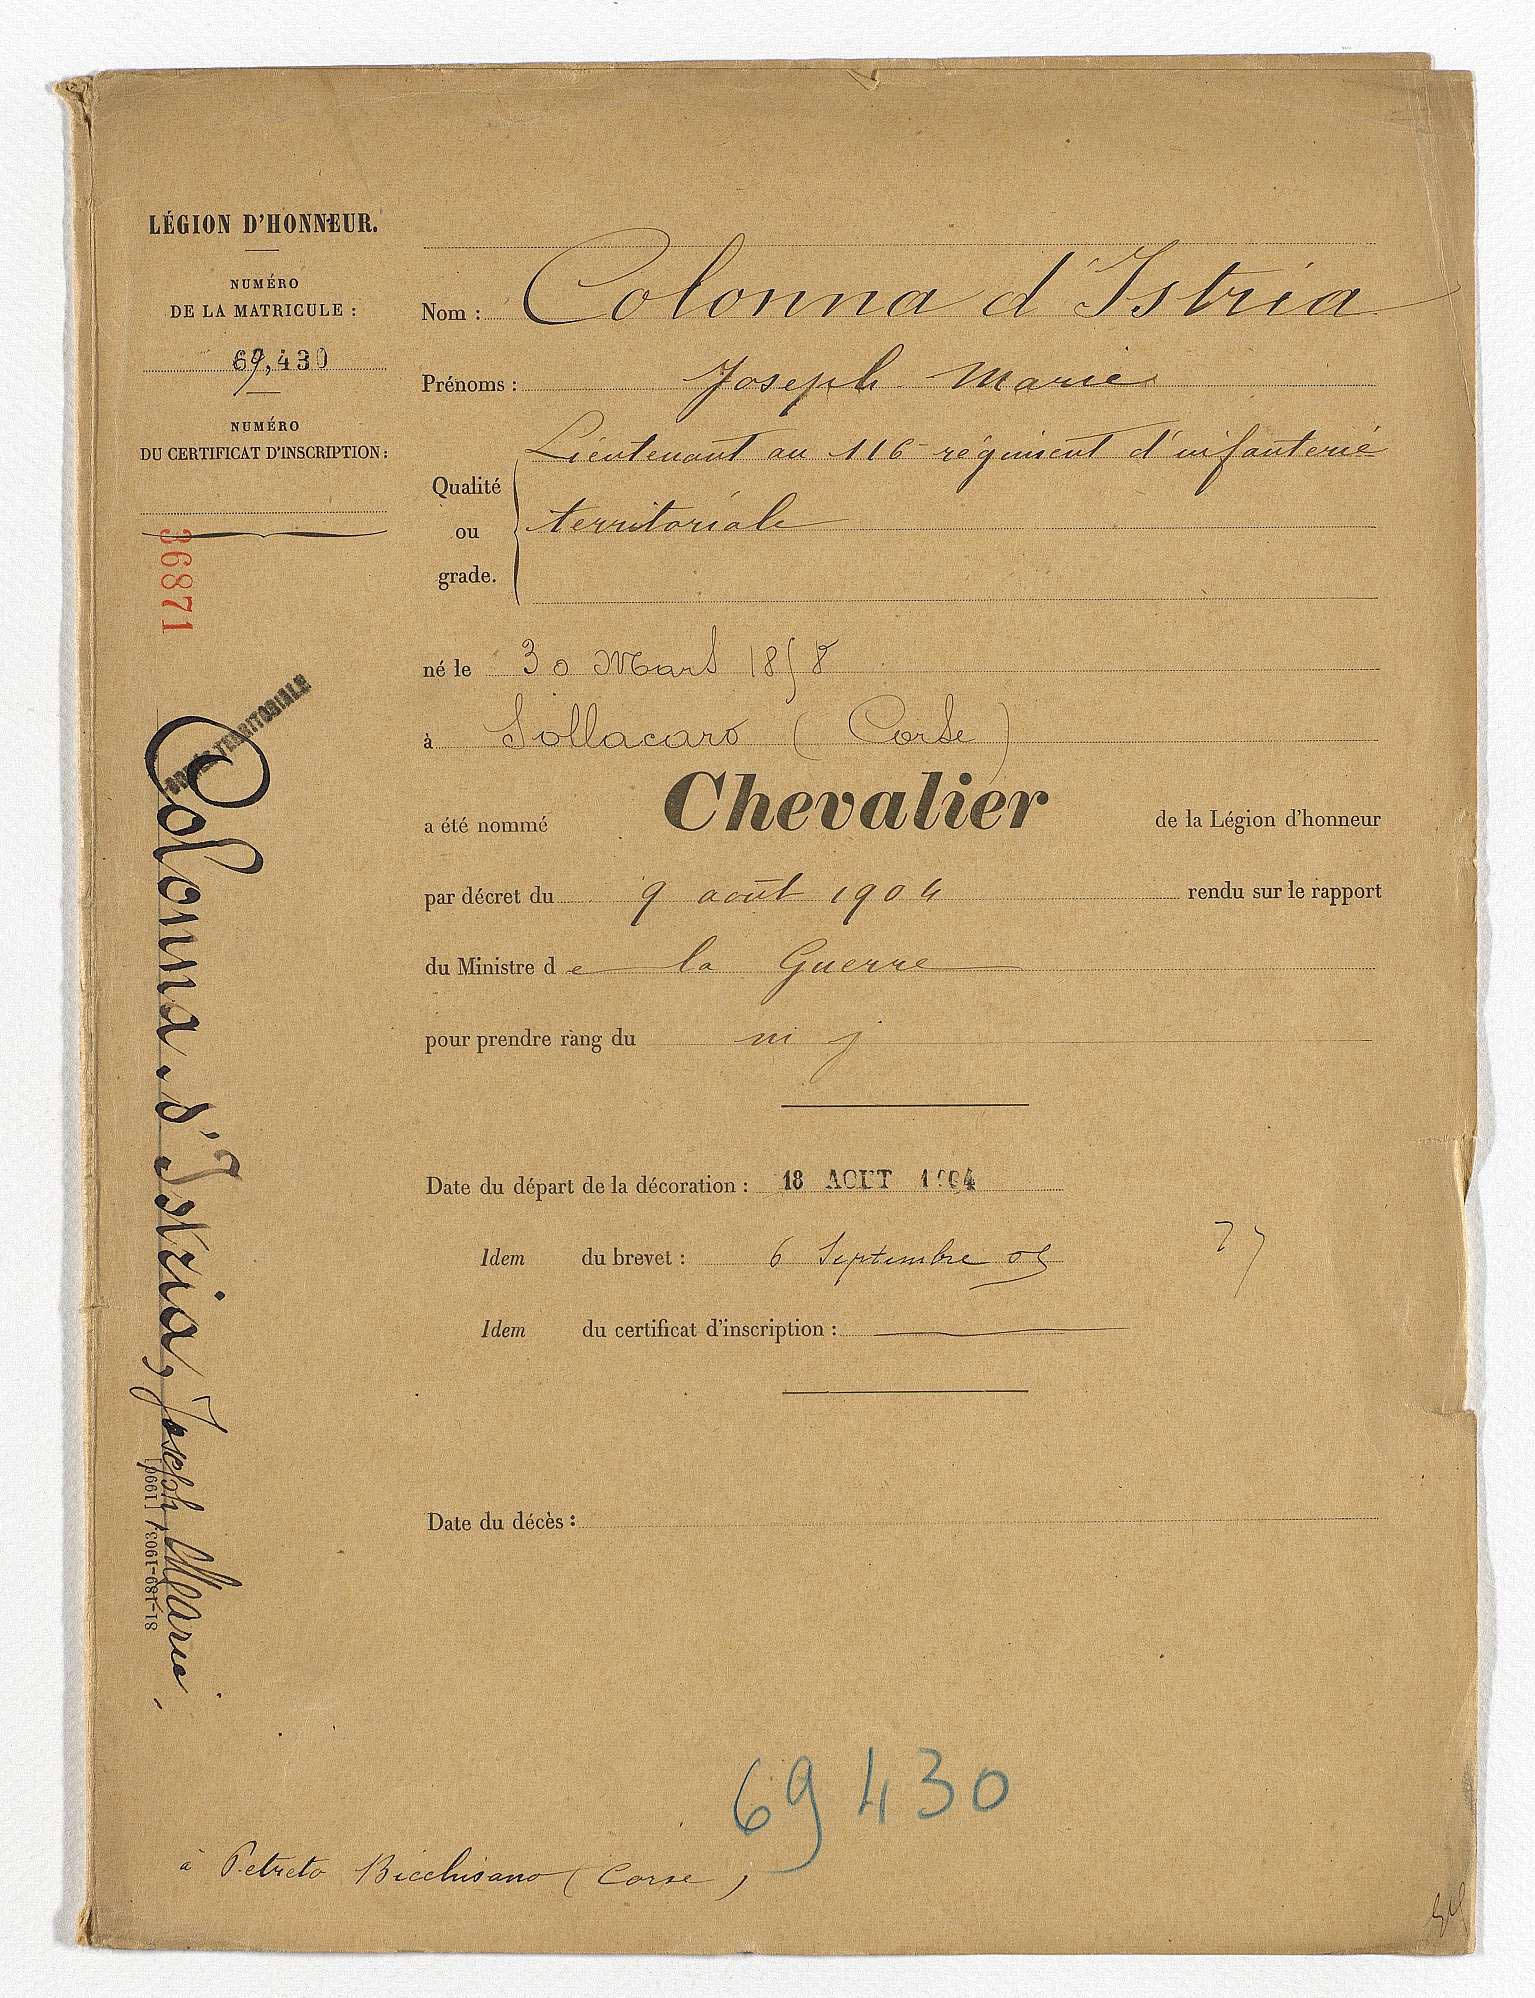 LÉGION D'HONNEUR.
NUMÉRO
DE LA MATRICULE :
69,430
NUMÉRO
DU CERTIFICAT D'INSCRIPTION :
36871
ARMÉE TERRITORIALE
Colonna d'Istria, Joseph Marie.
81-189-1903. [1999]
Nom : Colonna d'Istria
Prénoms : Joseph Marie
Qualité ou grade. Lieutenant au 116e régiment d'infanterie
territoriale
né le 30 Mars 1858
à Sollacaro (Corse)
a été nommé Chevalier de la Légion d'honneur
par décret du 9 août 1904 rendu sur le rapport
du Ministre de la Guerre
pour prendre rang du m j
Date du départ de la décoration : 18 AOUT 1904
Idem du brevet : 6 Septembre 05
Idem du certificat d'inscription :
Date du décès :
69430
à Petreto Bicchisano (Corse)